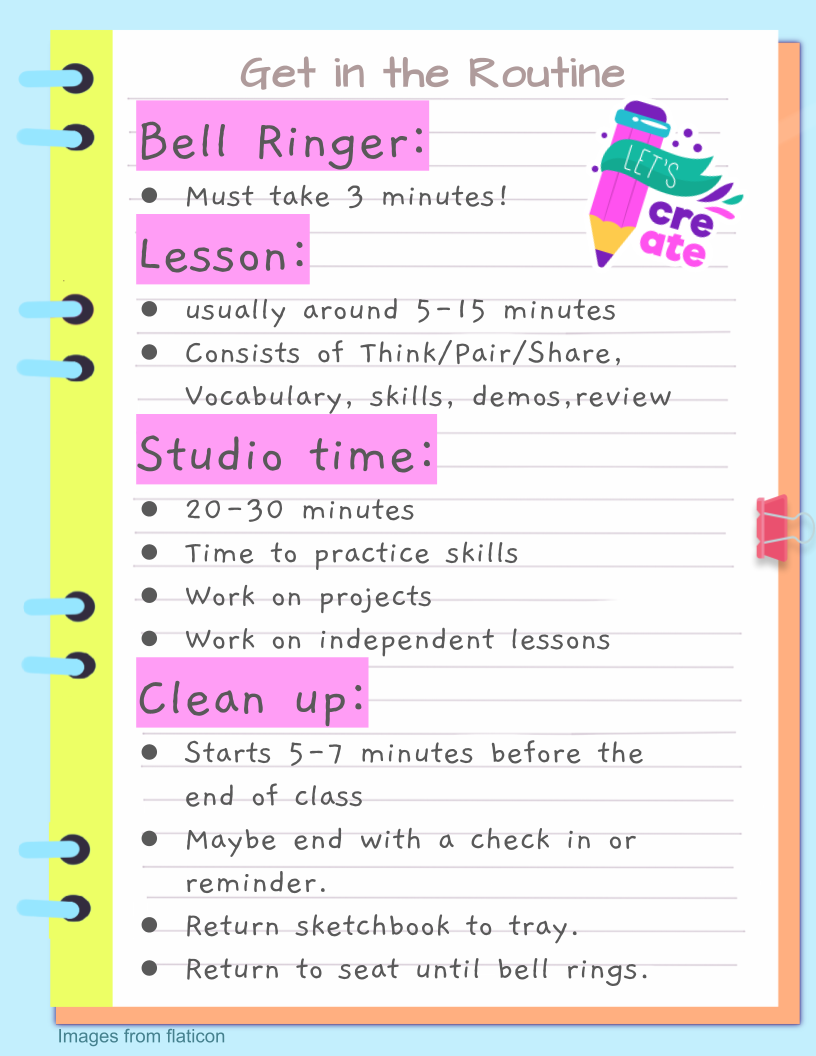 Get in the Routine
Bell Ringer:
● Must take 3 minutes!
LET'S
cre
ate
Lesson:
● usually around 5-15 minutes
● Consists of Think/Pair/Share,
Vocabulary, skills, demos,review
Studio time:
● 20-30 minutes
● Time to practice skills
● Work on projects
● Work on independent lessons
Clean up:
● Starts 5-7 minutes before the
end of class
● Maybe end with a check in or
reminder.
● Return sketchbook to tray.
● Return to seat until bell rings.
Images from flaticon